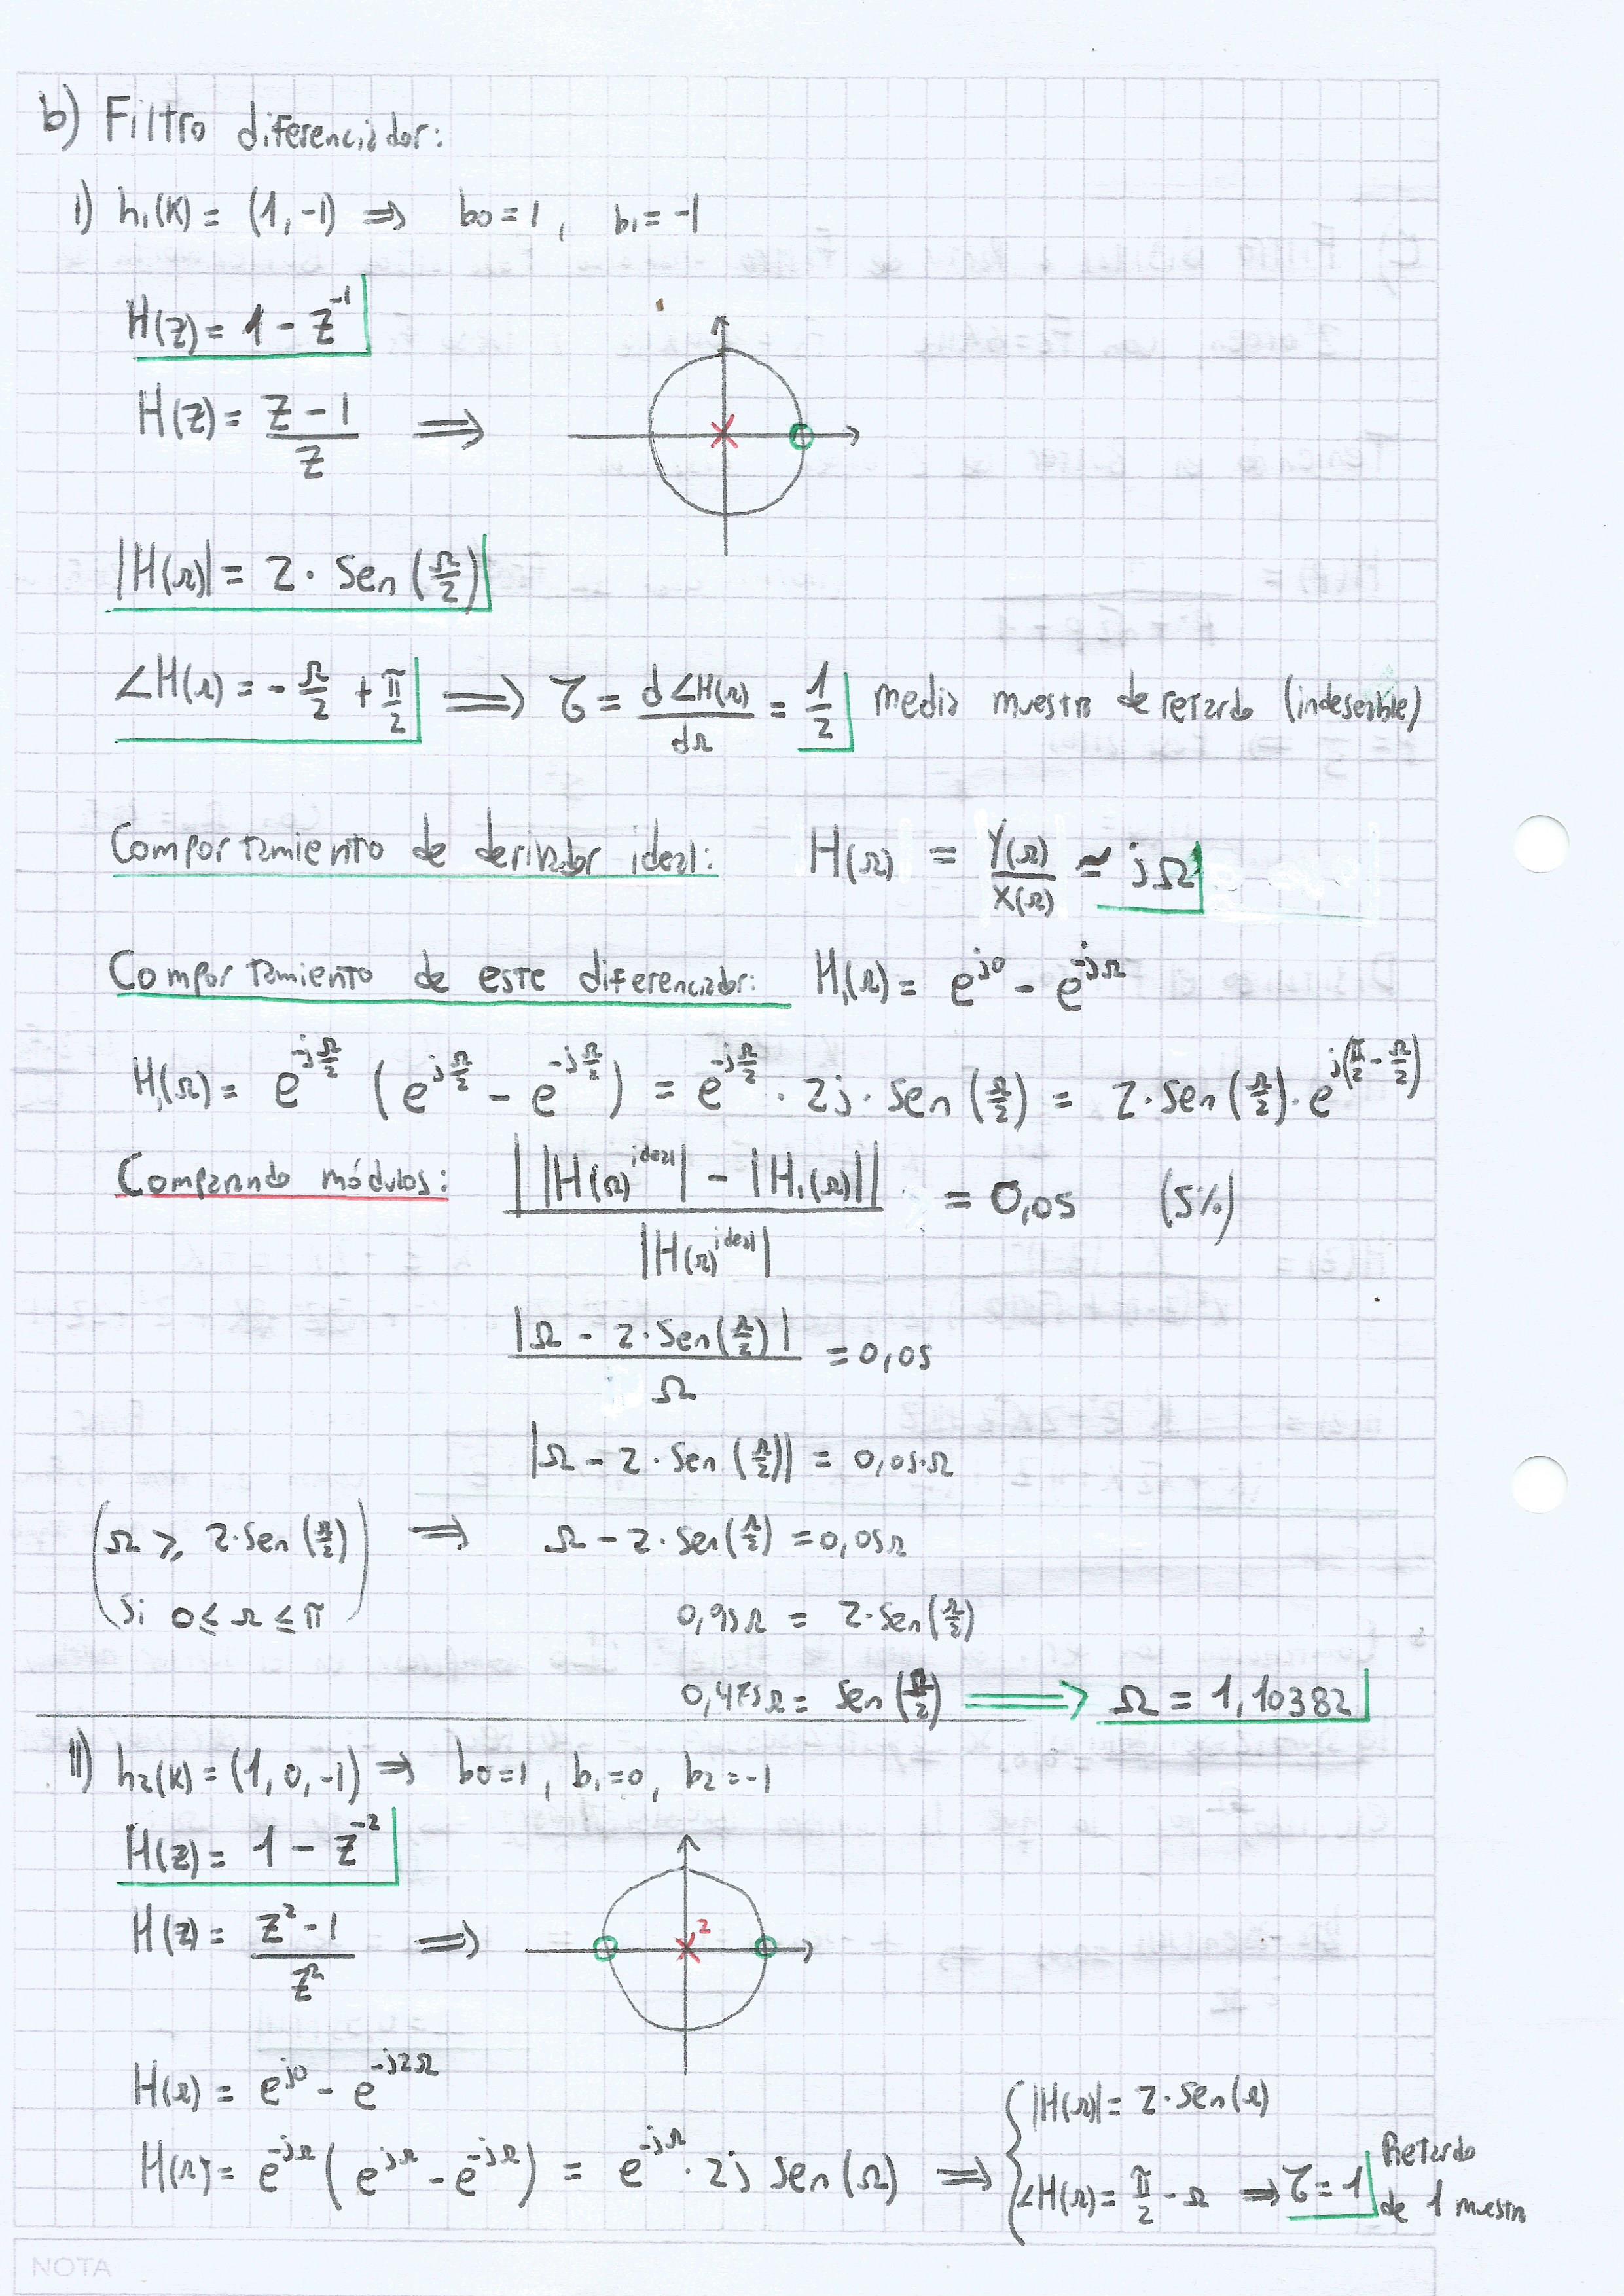 b) Filtro diferenciador:
i) h₁(k) = (1, -1) ⇒ b0 = 1, b₁ = -1
H(z) = 1 - z⁻¹
H(z) = (z - 1)/z ⇒
|H(Ω)| = 2 · Sen (Ω/2)
∠H(Ω) = - Ω/2 + π/2 ⇒ τ = d∠H(Ω)/dΩ = 1/2 media muestra de retardo (indeseable)
Comportamiento de derivador ideal: H(Ω) = Y(Ω)/X(Ω) ≈ jΩ
Comportamiento de este diferenciador: H₁(Ω) = e^(j0) - e^(-jΩ)
H₁(Ω) = e^(-jΩ/2) (e^(jΩ/2) - e^(-jΩ/2)) = e^(-jΩ/2) · 2j · Sen (Ω/2) = 2 · Sen (Ω/2) · e^(j(π/2 - Ω/2))
Comparando módulos: ||H(Ω)^ideal| - |H₁(Ω)|| / |H(Ω)^ideal| = 0,05 (5%)
|Ω - 2 · Sen(Ω/2)| / Ω = 0,05
|Ω - 2 · Sen (Ω/2)| = 0,05·Ω
(Ω ≥ 2·Sen (Ω/2) ⇒ Ω - 2 · Sen(Ω/2) = 0,05Ω
Si 0 ≤ Ω ≤ π) 0,95Ω = 2·Sen(Ω/2)
0,475Ω = Sen (Ω/2) ⇒ Ω = 1,10382
II) h₂(k) = (1, 0, -1) ⇒ b0=1, b₁=0, b₂=-1
H(z) = 1 - z⁻²
H(z) = (z² - 1)/z² ⇒
2
H(Ω) = e^(j0) - e^(-j2Ω)
H(Ω) = e^(-jΩ) (e^(jΩ) - e^(-jΩ)) = e^(-jΩ) · 2j Sen (Ω) ⇒ { |H(Ω)| = 2·Sen(Ω)
∠H(Ω) = π/2 - Ω ⇒ τ = 1 Retardo de 1 muestra
NOTA